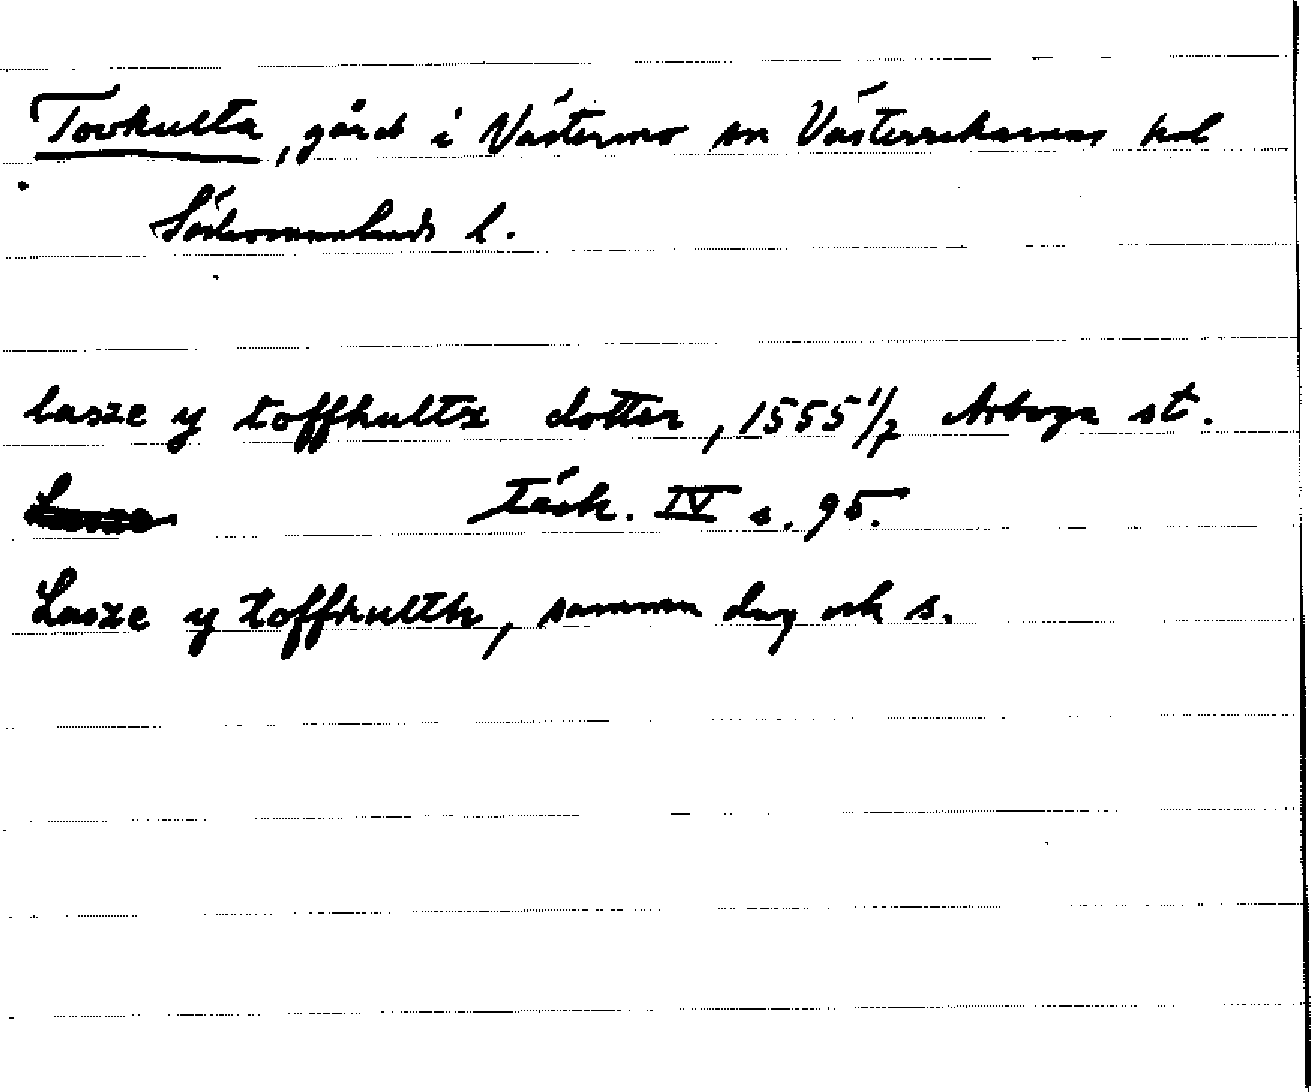 Tovhulta, gård i Västermo sn Västerrekarnes hd
Södermanlands l.
lasze y toffhultz dotter, 1555 1/7 Arboga st.
tänk. IV s. 95.
Lasze y toffhulth, samma dag och s.